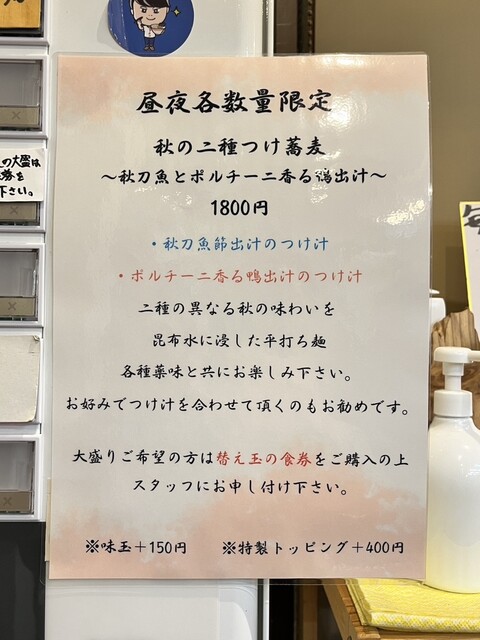 昼夜各数量限定
秋の二種つけ蕎麦
～秋刀魚とポルチーニ香る鴨出汁～
1800円
・秋刀魚節出汁のつけ汁
・ポルチーニ香る鴨出汁のつけ汁
二種の異なる秋の味わいを
昆布水に浸した平打ち麺
各種薬味と共にお楽しみ下さい。
お好みでつけ汁を合わせて頂くのもお勧めです。
大盛りご希望の方は替え玉の食券をご購入の上
スタッフにお申し付け下さい。
※味玉＋150円　※特製トッピング＋400円
の大盛は
券を
下さい。